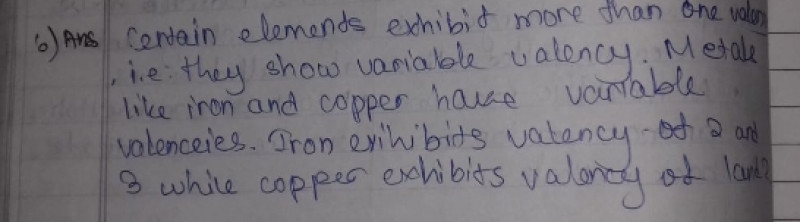 6) Ans Certain elements exhibit more than one valen
, i.e. they show variable valency. Metals
like iron and copper have variable
valenceies. Iron exihibits valency of 2 and
3 while copper exhibits valency of 1 and 2